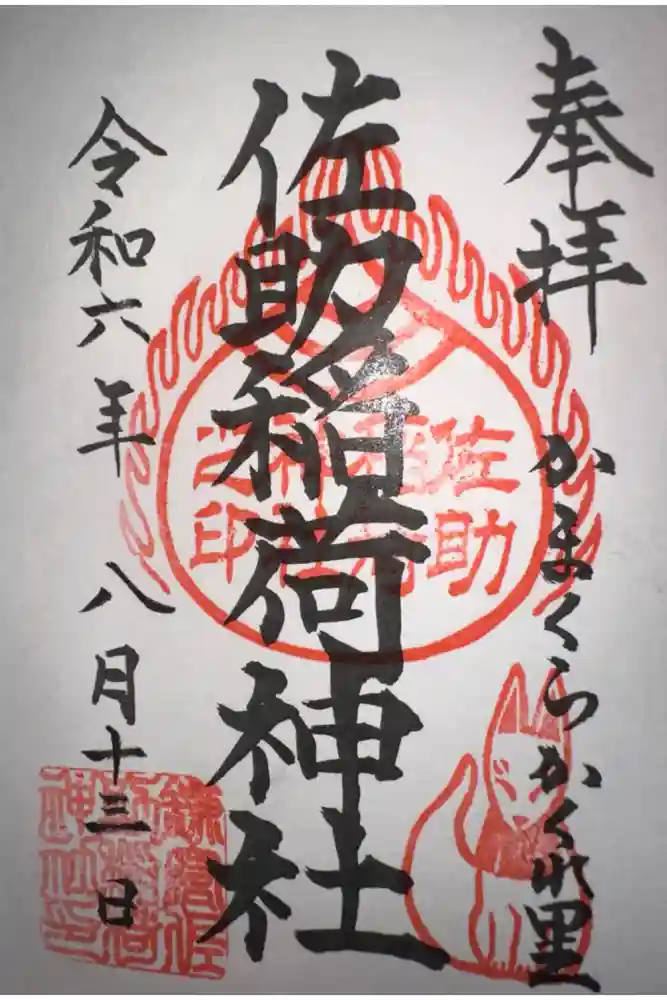 奉拝
かまくらかくれ里
佐助稲荷神社
令和六年 八月十三日
佐助
稲荷
神社
之印